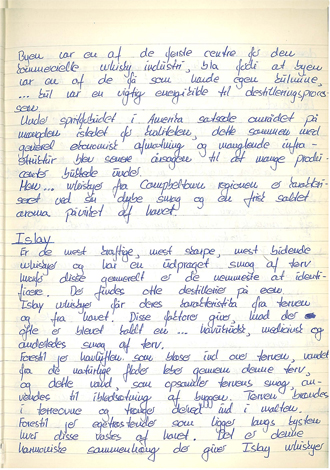 Byen var en af de første centre for den
kommercielle whisky industri, bla fordi at byen
var en af de få som havde egen kulmine,
... kul var en vigtig energikilde til destilleringsproces
sen.
Under spritforbudet i Amerika satsede området på
mængden istedet for kvaliteten, dette sammen med
generel økonomisk afmatning og manglende infra-
struktur blev senere årsagen til at mange produ-
center bukkede under.
Men... whiskyer fra Campbeltown regionen er karakteri-
seret ved sin dybe smag og en frist saltet
aroma påvirket af havet.
Islay
Er de mest kraftige, mest skarpe, mest bidende
whiskyer og har en udpræget smag af tørv
hvorfor disse generelt er de nemmeste at identi-
ficere. Der findes otte destillerier på øen
Islay whiskyer får deres karakteristika fra tørven
og fra havet! Disse faktorer giver, hvad der
ofte er blevet kaldt en ... medicinsk og
anderledes smag af tørv.
Forestil jer havluften som blæser ind over tørven, vandet
fra de naturlige floder løbe gennem denne tørv,
og dette vand, som opsamler tørvens smag, an-
vendes til iblødsætning af byggen. Tørven brændes
i tørreovne og trænger derved ind i malten.
Forestil jer egetræstønder som ligger langs kysten
hvor disse vaskes af havet. Det er denne
harmoniske sammenhæng der giver Islay whisky